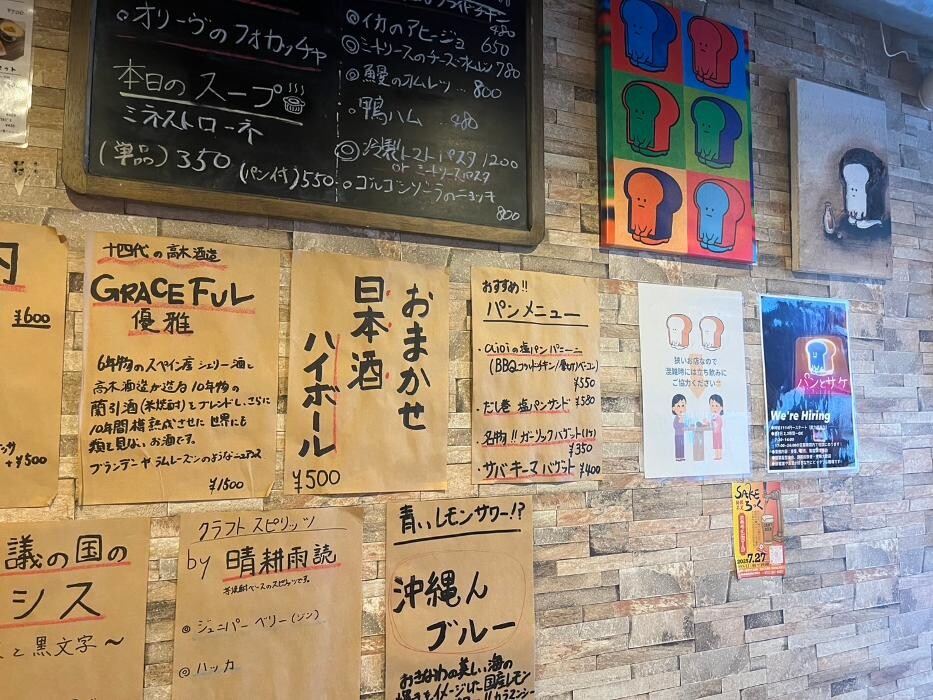 ・オリーヴのフォカッチャ
本日のスープ
ミネストローネ
(単品)350
(パン付)550
フライドチキン
480
◎イカのアヒージョ 650
◎ミートソースのチーズオムレツ 780
◎鰻のオムレツ… 800
◎鴨ハム 480
◎冷製トマトパスタ 1200
or ミートソースパスタ
◎ゴルゴンゾーラのニョッキ
800
¥600
十四代の高木酒造
GRACEFUL
優雅
6年物のスペイン産シェリー酒と
高木酒造が造る10年物の
蘭引酒(米焼酎)をブレンドし、さらに
10年間樽熟成させた世界にも
類を見ない、お酒です。
ブランデーやラムレーズンのようなニュアンス
¥1500
おまかせ
日本酒
ハイボール
¥500
おすすめ!!
パンメニュー
・aioiの塩パンパニーニ
¥550
・だし巻 塩パンサンド ¥580
・名物!! ガーリックバゲット
¥350
・サバキーマバゲット ¥400
狭いお店なので
混雑時には立ち飲みに
ご協力ください
パンとサケ
We're Hiring
SAKE
7.27
+¥500
議の国の
シス
と黒文字〜
クラフトスピリッツ
by 晴耕雨読
芋焼酎ベースのスピリッツです。
◎ジュニパーベリー(ジン)
◎ハッカ
青いレモンサワー!?
沖縄ん
ブルー
おきなわの美しい海の
輝きをイメージした国産レモン